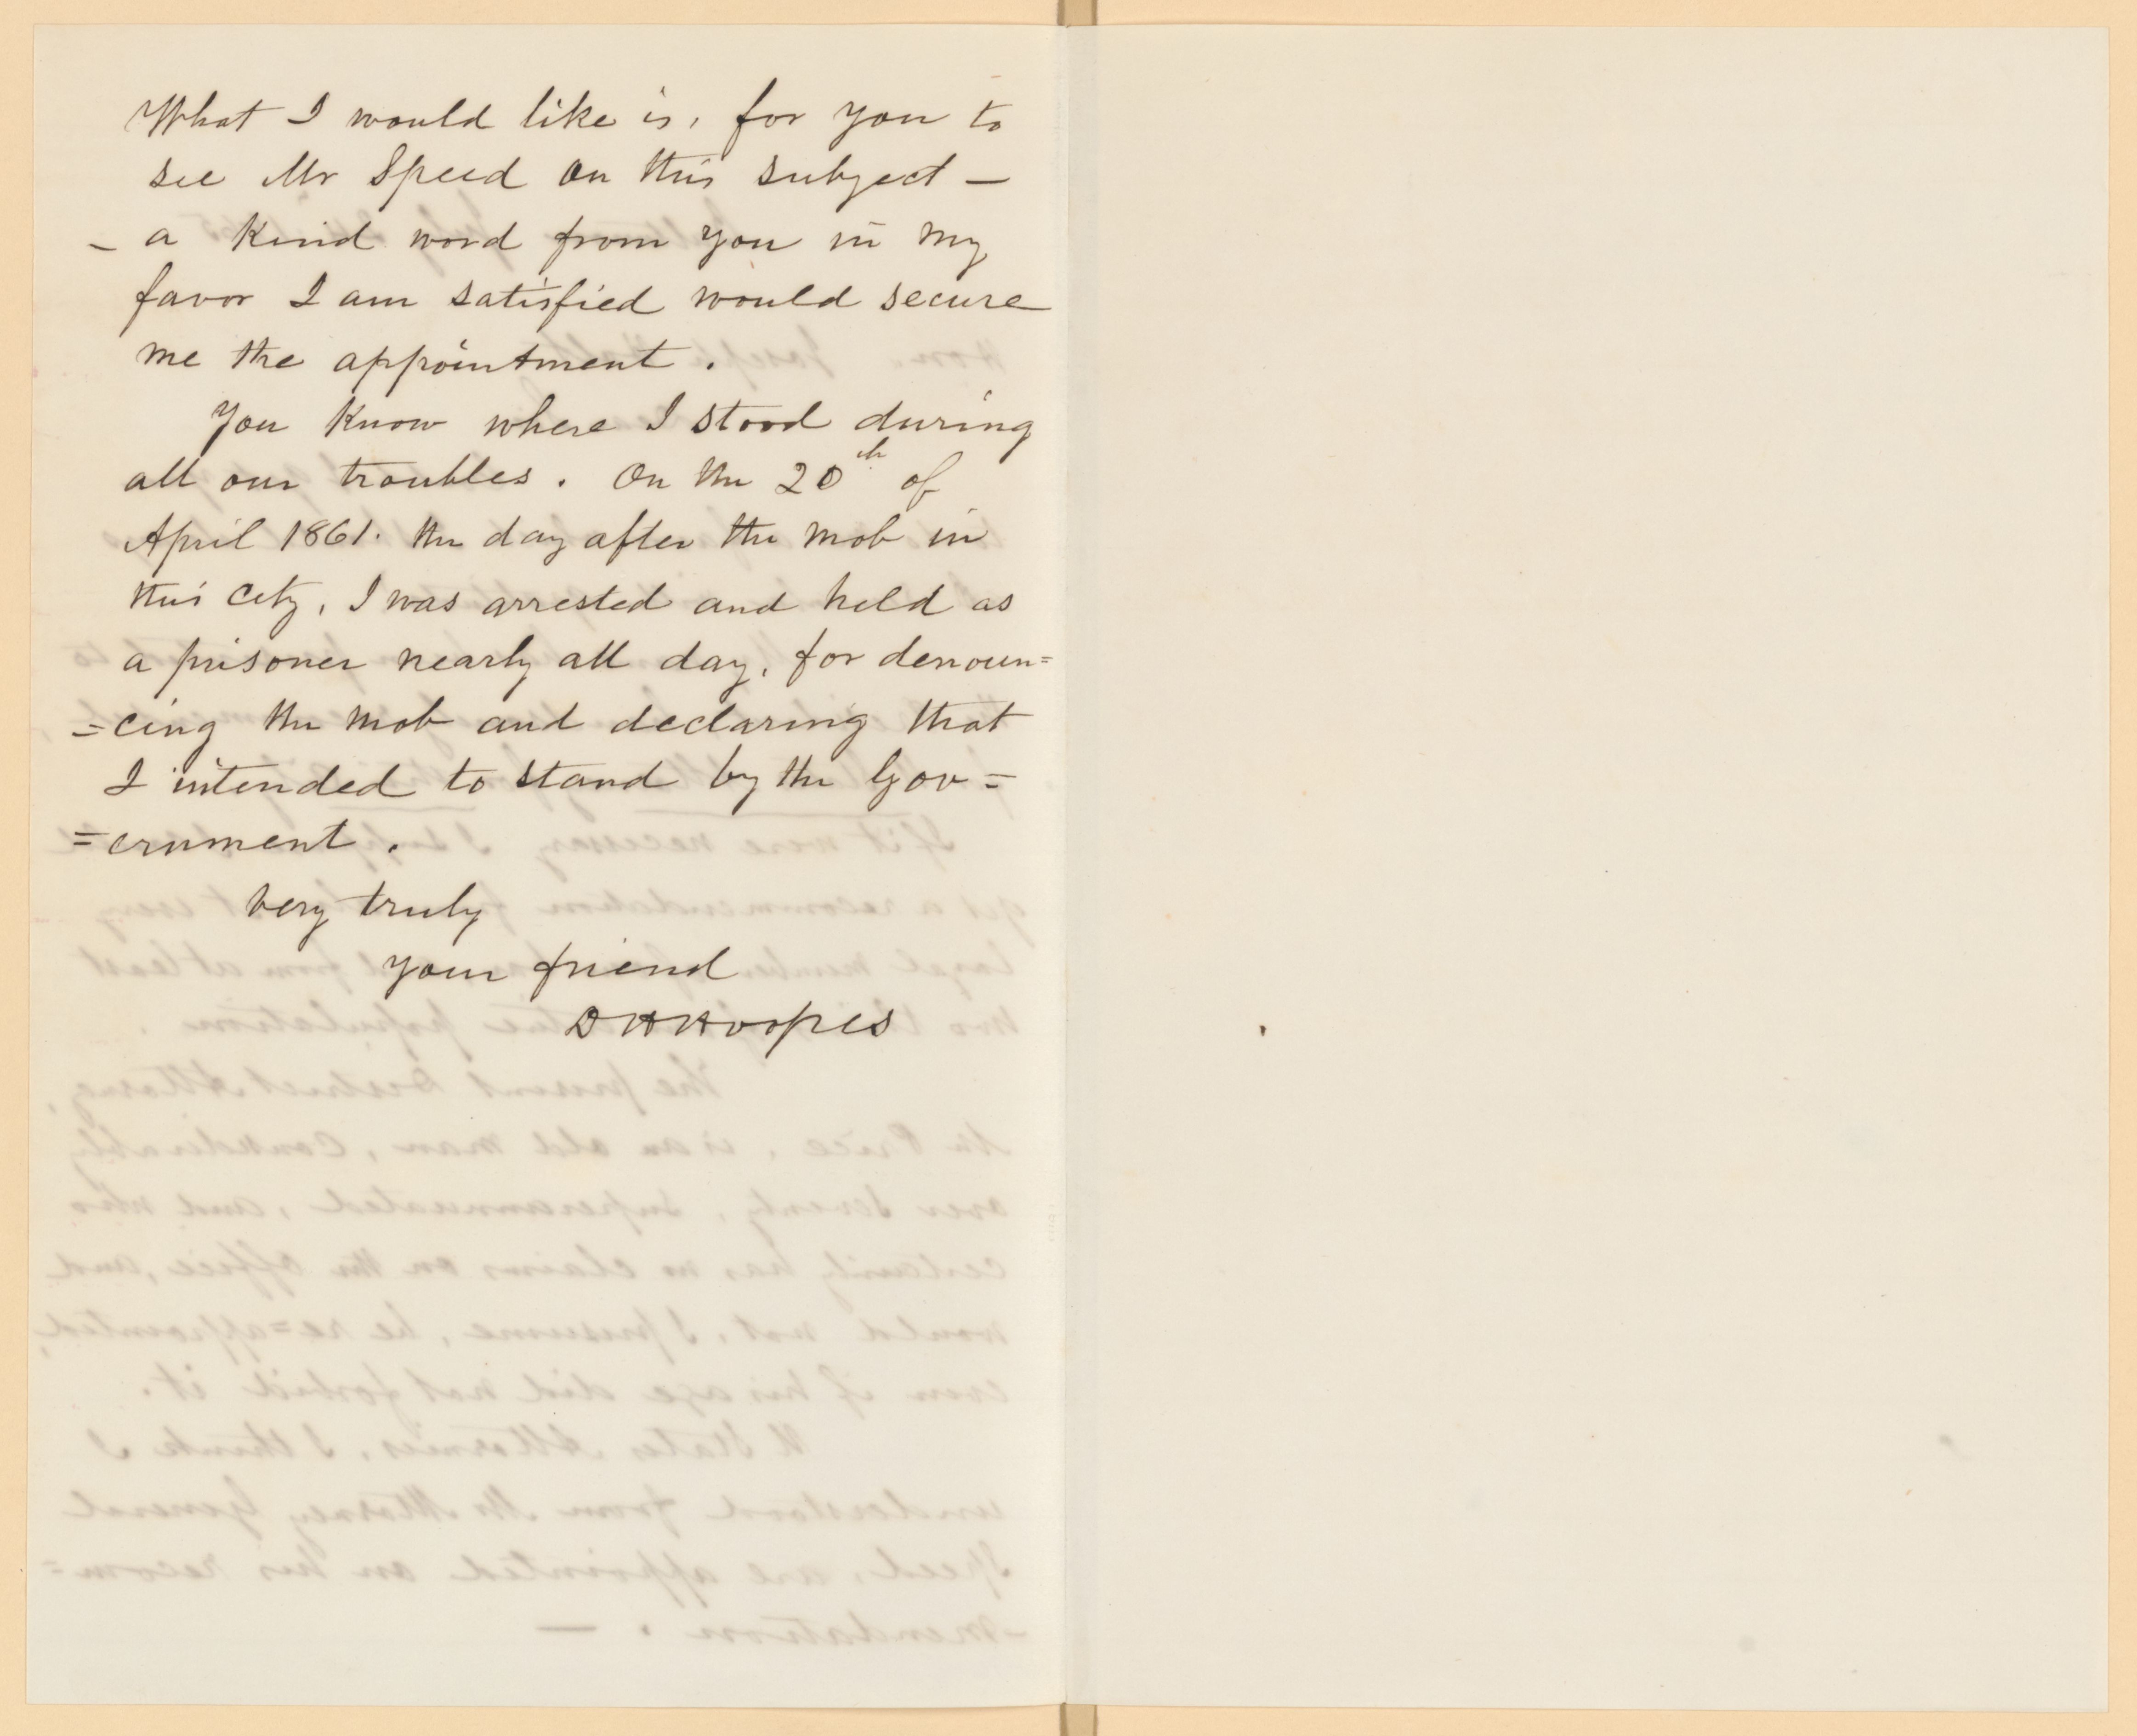 What I would like is, for you to
see Mr Speed on this subject —
– a kind word from you in my
favor I am satisfied would secure
me the appointment.
You know where I stood during
all our troubles. On the 20th of
April 1861. the day after the mob in
this city, I was arrested and held as
a prisoner nearly all day, for denoun=
=cing the mob and declaring that
I intended to stand by the Gov=
=ernment.
Very truly
your friend
D H Hoopes